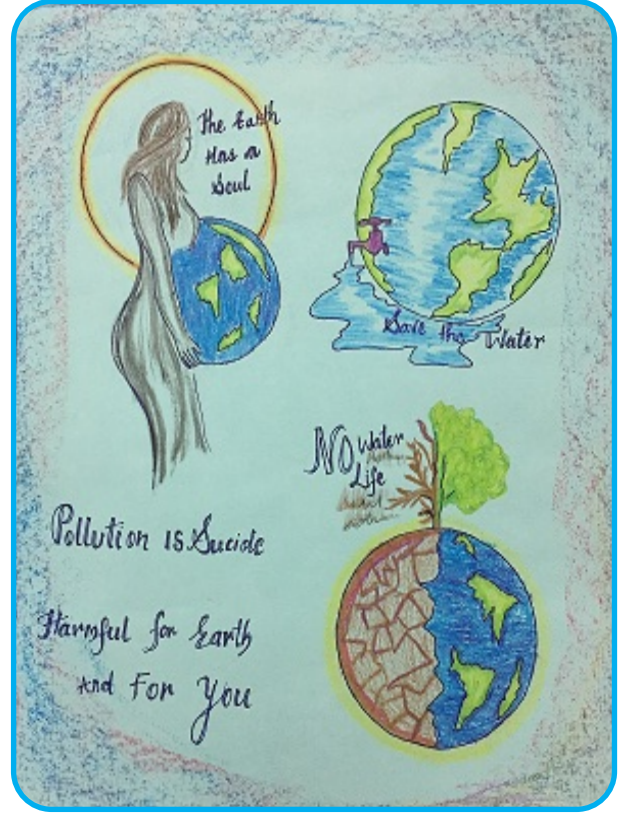 The Earth
Has a
Soul
Save the Water
NO Water
Life
Pollution is Suicide
Harmful for Earth
And For You